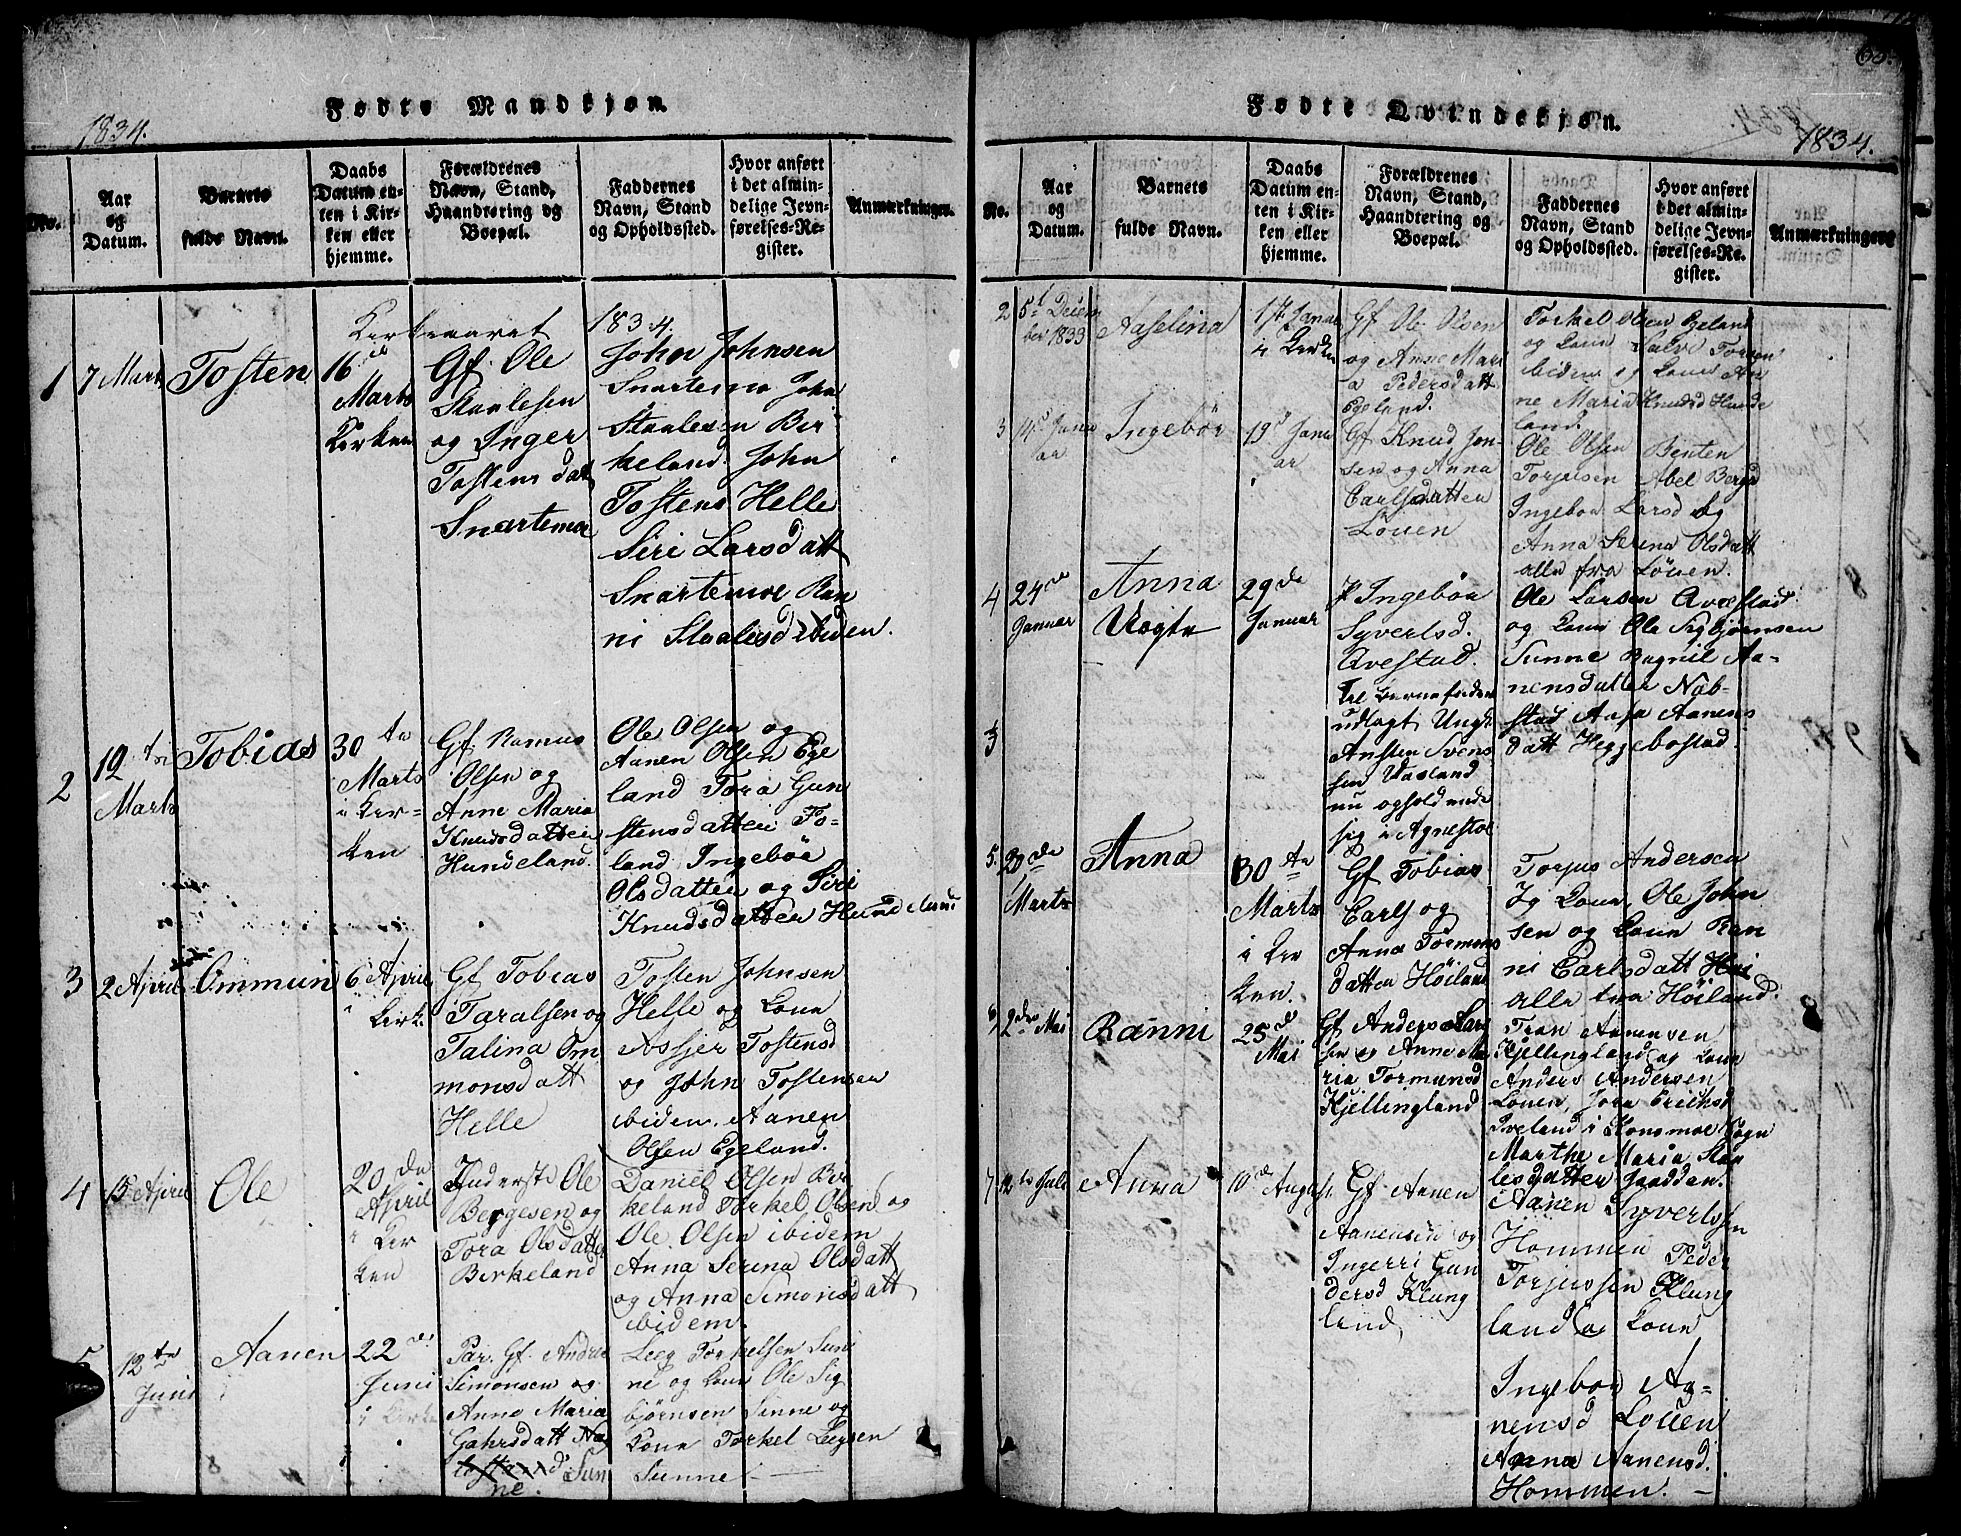 Fødte Mandkjøn.
1834.
No.
Aar
og
Datum.
Barnets
fulde Navn.
Daabs
Datum en-
ten i Kir-
ken eller
hjemme.
Forældrenes
Navn, Stand,
Haandtering og
Boepæl.
Faddernes
Navn, Stand
og Opholdssted.
Hvor anført
i det almin-
delige Jevn-
førelses-Re-
gister.
Anmærkninger.
Kirkeaaret 1834.
1
7 Marts
Tosten
16de
Marts
Kirken
Gf. Ole
Staalesen
og Inger
Tostensdatt
Snartemoe
John Johnsen
Snartemo John
Staalesen Bir
keland. John
Tostens Helle
Siri Larsdatt
Snartemoe Ran
ni Staalesd ibiden.
2
12te
Marts
Tobias
30te
Marts
i Kir-
ken
Gf. Rasmus
Olsen og
Anne Maria
Knudsdatter
Hundeland.
Ole Olsen og
Aanen Olsen Ege
land Tora Gun
stensdatter Fo-
land Ingebør
Olsdatter og Siri
Knudsdatter
3
2 April
Ommun
6 April
i
Kirk.
Gf Tobias
Taralsen og
Talina Om
monsdatt
Helle
Tosten Johnsen
Helle og Kone
Assjer Tostensd
og John Tostensen
ibidem. Aanen
Olsen Egeland.
4
15 April
Ole
20de
April
i Kir
ken
Inderste Ole
Bergesen og
Tora Olsdatter
Birkeland
Daniel Olsen Bir
keland Torkel Olsen og
Ole Olsen ibidem
Anna Serina Olsdatt
og Anna Simonsdatt
ibidem.
5
12te
Juni
Aanen
22de
Juni
i Kirke
Par. Gf. Andrea
Simonsen og
Anne Maria
Gahrsdatt
Sun
ne.
Leeg Torkelsen Sun
ne og Kone Ole Sig
bjørnsen Sunne og
Kone Torkel Leegsen
Sunne
Fødte Qvindekjøn.
1834.
No.
Aar
og
Datum.
Barnets
fulde Navn.
Daabs
Datum en-
ten i Kir-
ken eller
hjemme.
Forældrenes
Navn, Stand,
Haandtering og
Boepæl.
Faddernes
Navn, Stand
og Opholdssted.
Hvor anført
i det almin-
delige Jevn-
førelses-Re-
gister.
Anmærkninger
2
5t Decem
ber 1833
Aaselina
17 Janua
i Kirken
Gf Ole Olsen
og Anne Mari
a Pedersdatt
Egeland.
Torkel Olsen Egeland
og Kone Salve
ibidem og Kone An
ne Maria Knudsd Hunde
land.
3
14d Janu
ar
Ingebør
19d Janu
ar
Gf Knud Jon
sen og Anna
Carlsdatter
Løuen
Ole Olsen Benten
Torjusen Abel Bergsd
Ingebor Larsd og
Anna Serina Olsdatt
alle fra Løuen.
4
24de
Januar
Anna
Uægte
29de
Januar
P Ingebør
Syvertsd.
Avestad.
til Barnefader
udlagt Ungk
Austen Svens
sen Vasland
nu opholdende
sig i Agnestøl
Ole Larsen Avestad
og Kone Ole Sigbjørnsen
Sunne Bagnil Aa-
nensdatter Neb-
stad Aasa Aanens
datt Heggebostad.
5
20de
Marts
Anna
30te
Marts
i Kir
ken.
Gf Tobias
Carls og
Anna Tormons
datter Høiland
Torjus Andersen
og Kone, Ole John
sen og Kone Ran
ni Carlsdatt
alle fra Høiland.
6
2den Mai
Ranni
25d
Mai
Gf Anders Lar
sen og Anne Ma
ria Tormunsd
Kjellingland
Tron Aanensen
Kjellingland og Kone
Anders Andersen
Løuen, Jora Erichsd
Iveland i Konsmoe Sogn
Marthe Maria Staa
lesdatter Gaadden.
7
12te Juli
Anna
10de August
Gf. Aanen
Aanensen og
Ingerri Gun
dersd Klung
land
Aanen Syvertsen
Hommen Peder
Torjussen Klung
land og Kone
Ingebor Aa-
nensd Løuen
Anna Aanensd.
Hommen.